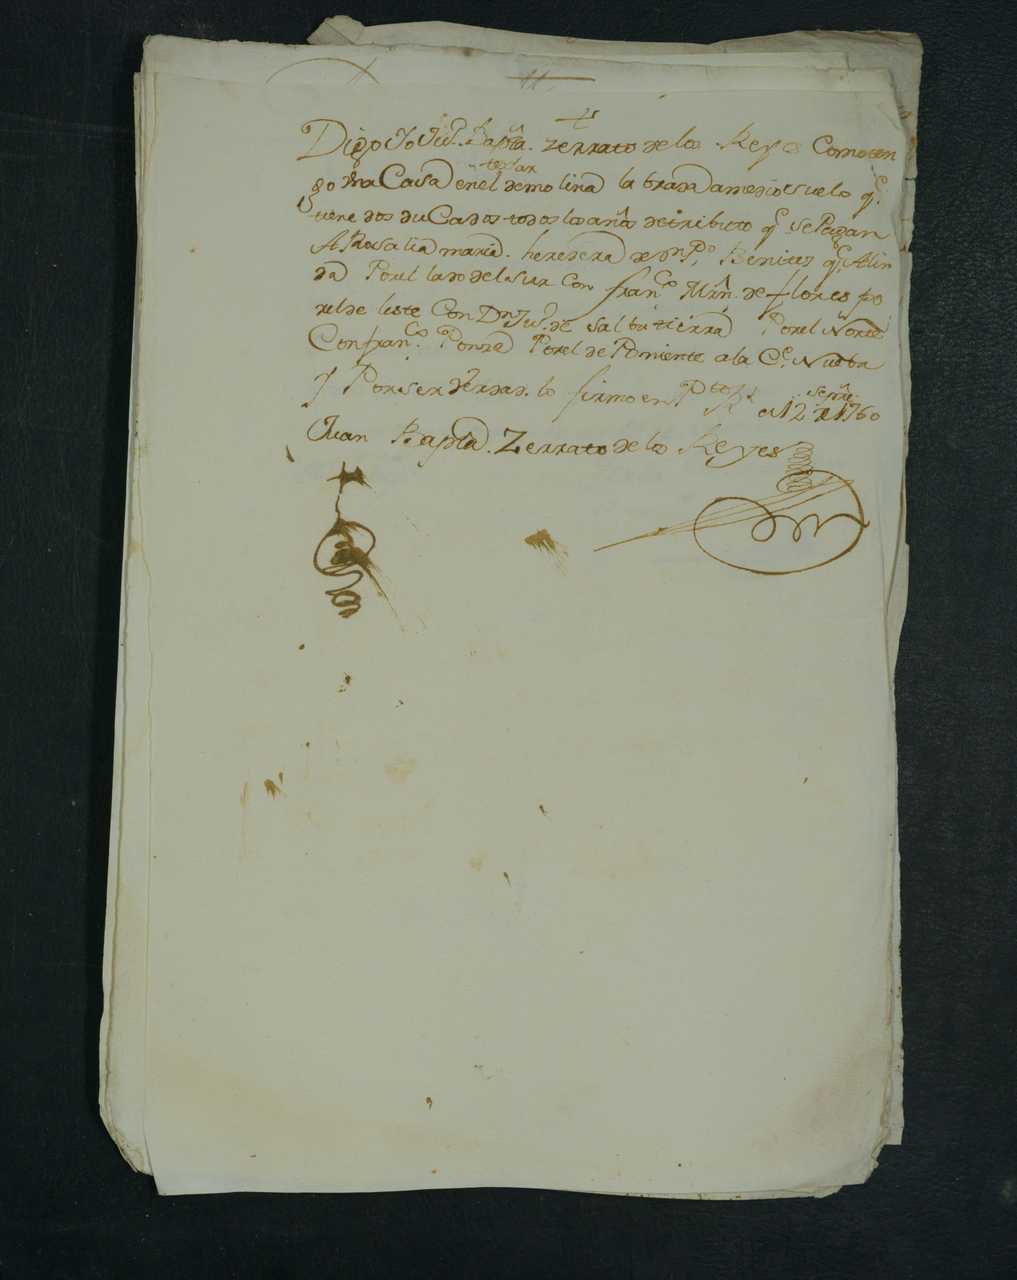 Digo Yo Jun. Bapta. Zerrato de los Reyes Como ten
go Vna Casa en el telar de molina labrada a medio suelo q.e
tiene dos duCados todos los años de tributo q.e se Pagan
A Rosalia maria. heredera de Dn. P.o Benites q.e Alin
da Por el lado del sur Con fran.co Mrn. de flores po
r el de leste Con Dn. Jun. de Salbatierra Por el Norte
Con fran.co Ponze Por el de Poniente a la C.e Nueba
Y Por ser Verdad. lo firmo en Pto. Rl. a 12 de sepre. 1760
Juan Bapta. Zerrato de los Reyes